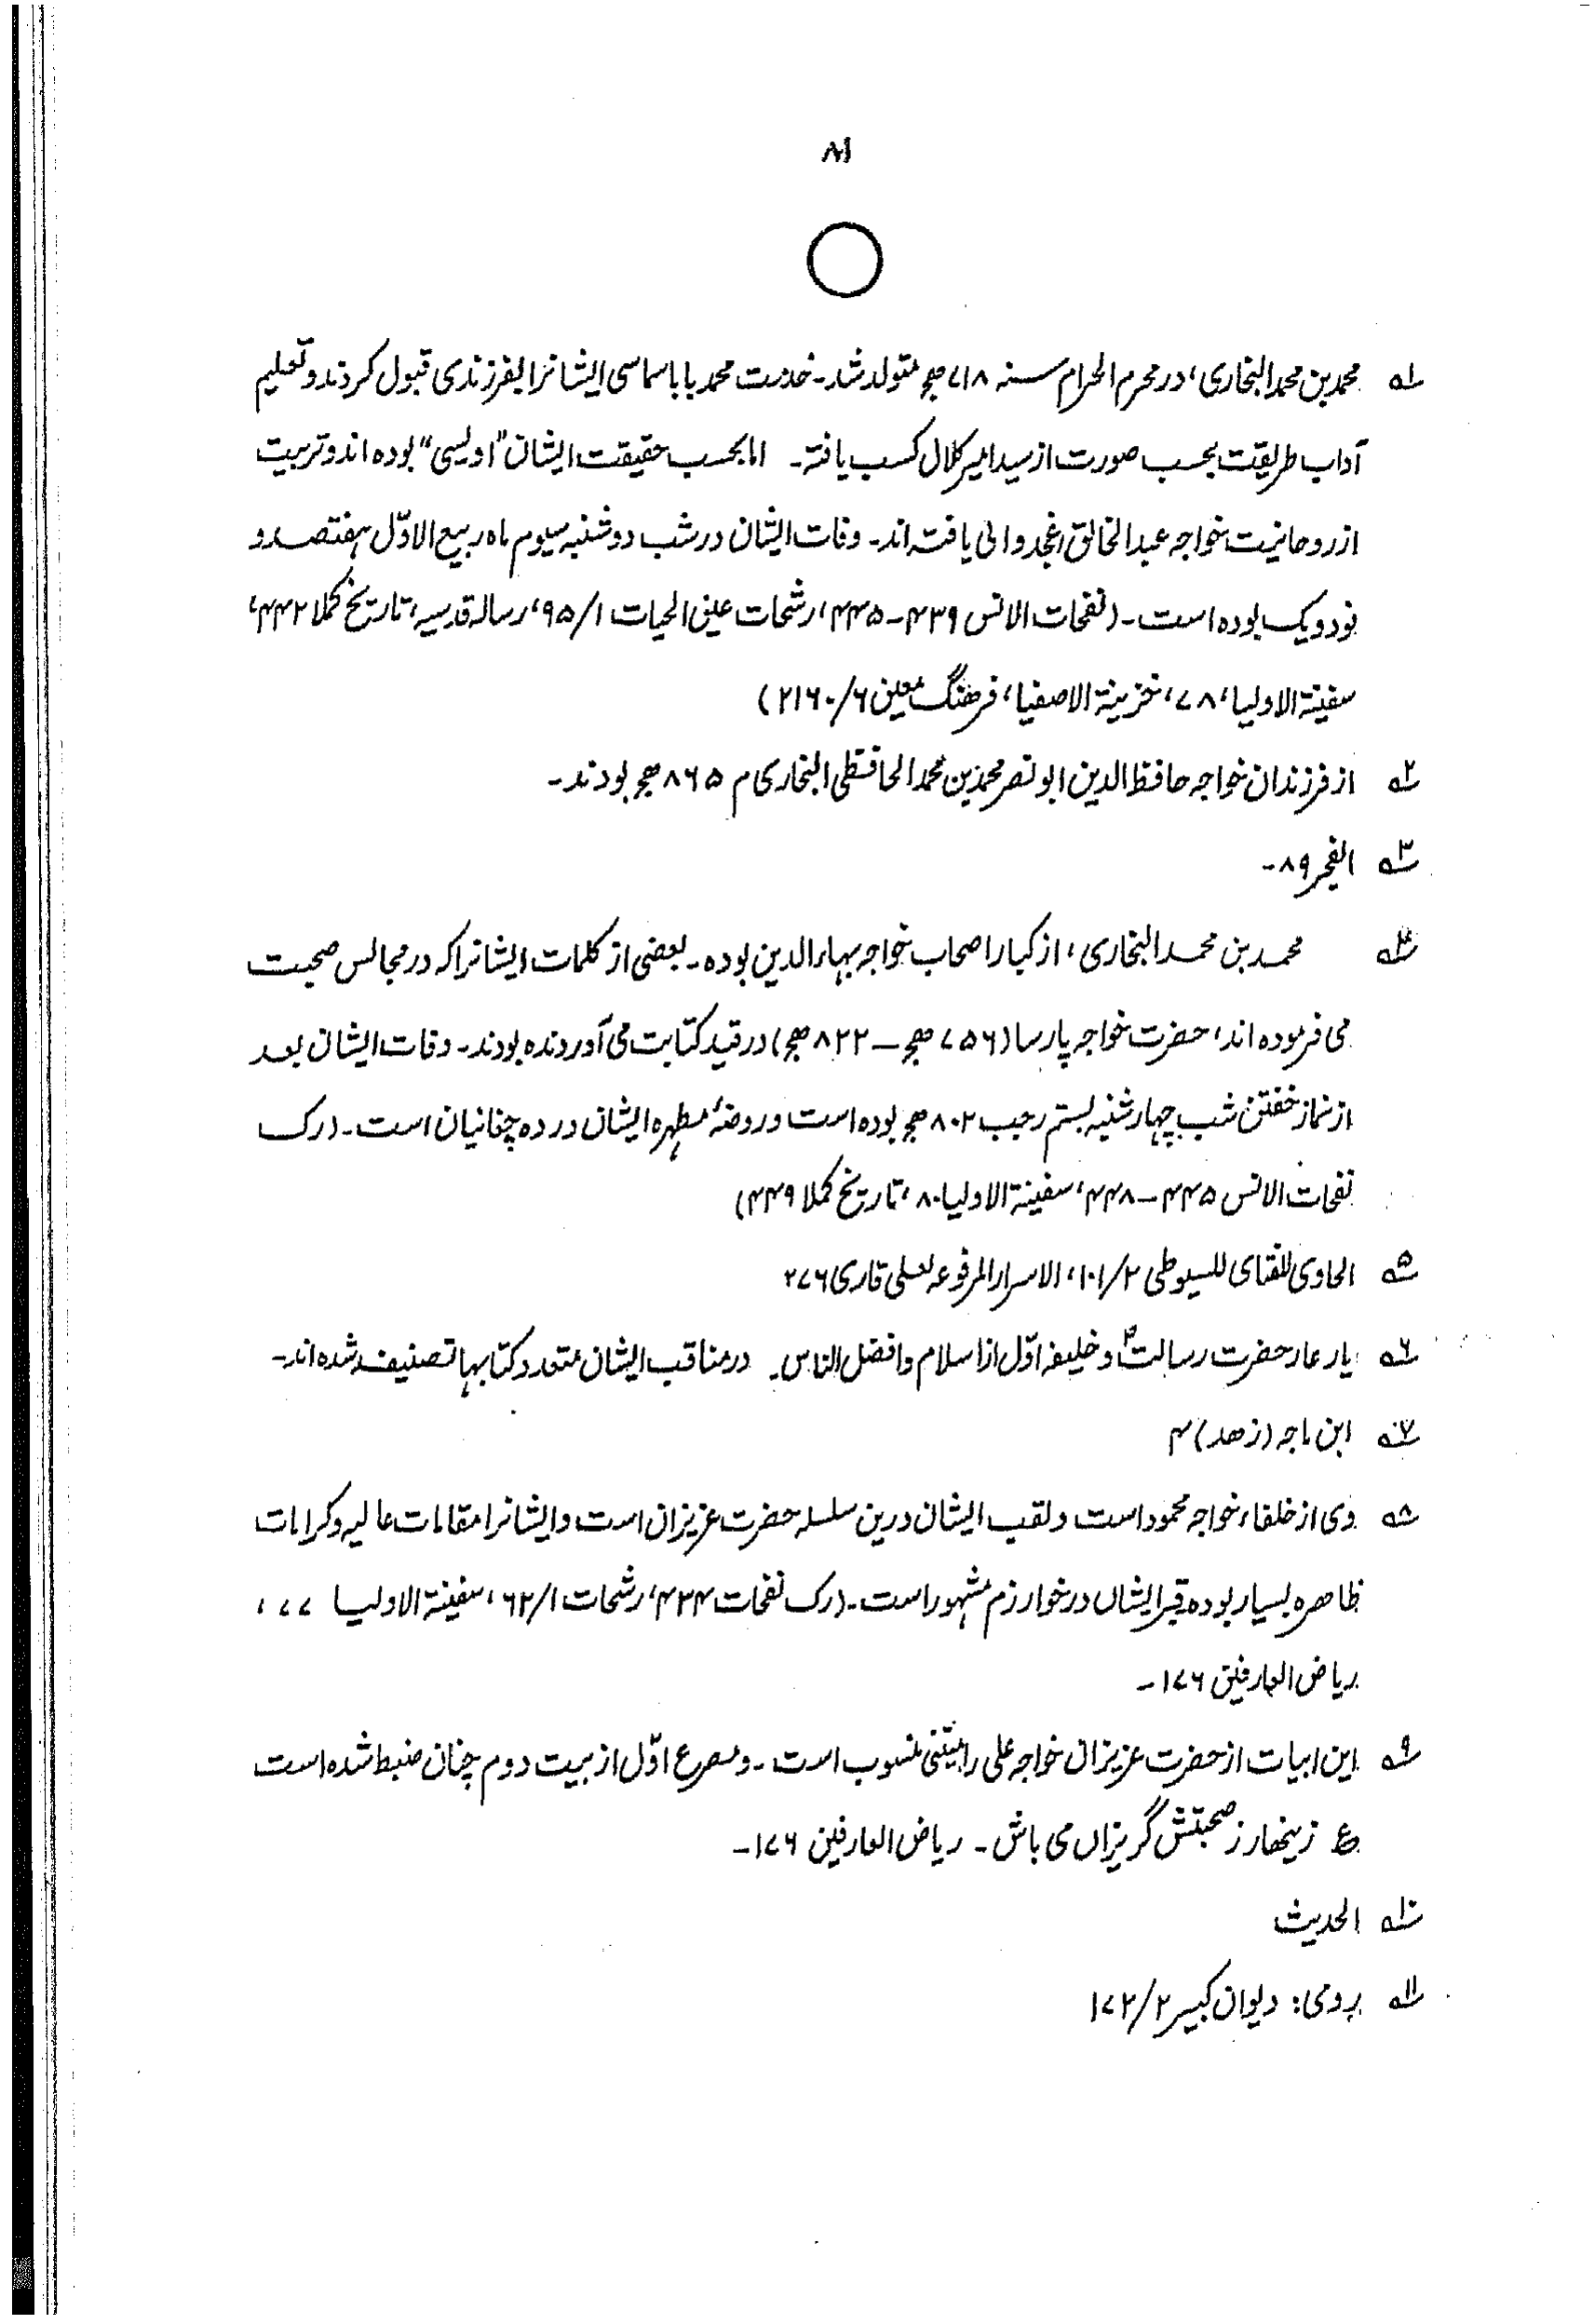 ۸۱
۱ه محمد بن محمد البخاری، در محرم الحرام سنه ۷۱۸ هج متولد شد۔ خدمت محمد بابا سماسی ایشانرا بفرزندی قبول کردند و تعلیم
آداب طریقت بحسب صورت از سید امیر کلال کسب یافتہ۔ اما بحسب حقیقت ایشان "اویسی" بوده اند و تربیت
از روحانیت خواجه عبدالخالق غجدوانی یافته اند۔ وفات ایشان در شب دوشنبه سیوم ماه ربیع الاوّل ہفتصد و
نود و یک بوده است۔ (نفحات الانس ۴۳۹-۴۴۵، رشحات عین الحیات ۹۵/۱، رساله قدسیه، تاریخ کملا ۴۴۲،
سفینة الاولیا، ۷۸، خزینة الاصفیا، فرهنگ معین ۲۱۶۰/۶)
۲ه از فرزندان خواجه حافظ الدین ابو نصر محمد بن محمد الحافظی البخاری م ۸۶۵ هج بودند۔
۳ه الفجر ۸۹۔
۴ه محمد بن محمد البخاری، از کبار اصحاب خواجه بہاء الدین بوده۔ بعضی از کلمات ایشانرا که در مجالس صحبت
می فرموده اند، حضرت خواجه پارسا (۷۵۶ هج - ۸۲۲ هج) در قید کتابت می آوردنده بودند۔ وفات ایشان بعد
از نماز خفتن شب چہار شنبه بستم رجب ۸۰۲ هج بوده است و روضۂ مطہره ایشان در ده چغانیان است۔ (رک
نفحات الانس ۴۴۵-۴۴۸، سفینة الاولیا ۸۰، تاریخ کملا ۴۴۹)
۵ه الحاوی للفتای للسیوطی ۱۰۱/۲، الاسرار المرفوعه لعلی قاری ۲۷۶
۶ه یار غار حضرت رسالتؐ و خلیفه اوّل از اسلام و افضل الناس۔ در مناقب ایشان متعدد کتابہا تصنیف شده اند۔
۷ه ابن ماجه (زهد) ۴
۸ه وی از خلفاء خواجه محمود است و لقب ایشان درین سلسله حضرت عزیزان است و ایشانرا مقامات عالیه و کرامات
ظاهره بسیار بوده قبر ایشاں در خوارزم مشہور است۔ (رک نفحات ۴۳۴، رشحات ۶۲/۱، سفینة الاولیا ۷۷،
ریاض العارفین ۱۷۶۔
۹ه این ابیات از حضرت عزیزان خواجه علی رامیتنی منسوب است۔ و مصرع اوّل از بیت دوم چنان ضبط شده است
ع زینهار ز صحبتش گریزاں می باش۔ ریاض العارفین ۱۷۶۔
۱۰ه الحدیث
۱۱ه رومی: دیوان کبیر ۱۷۲/۲